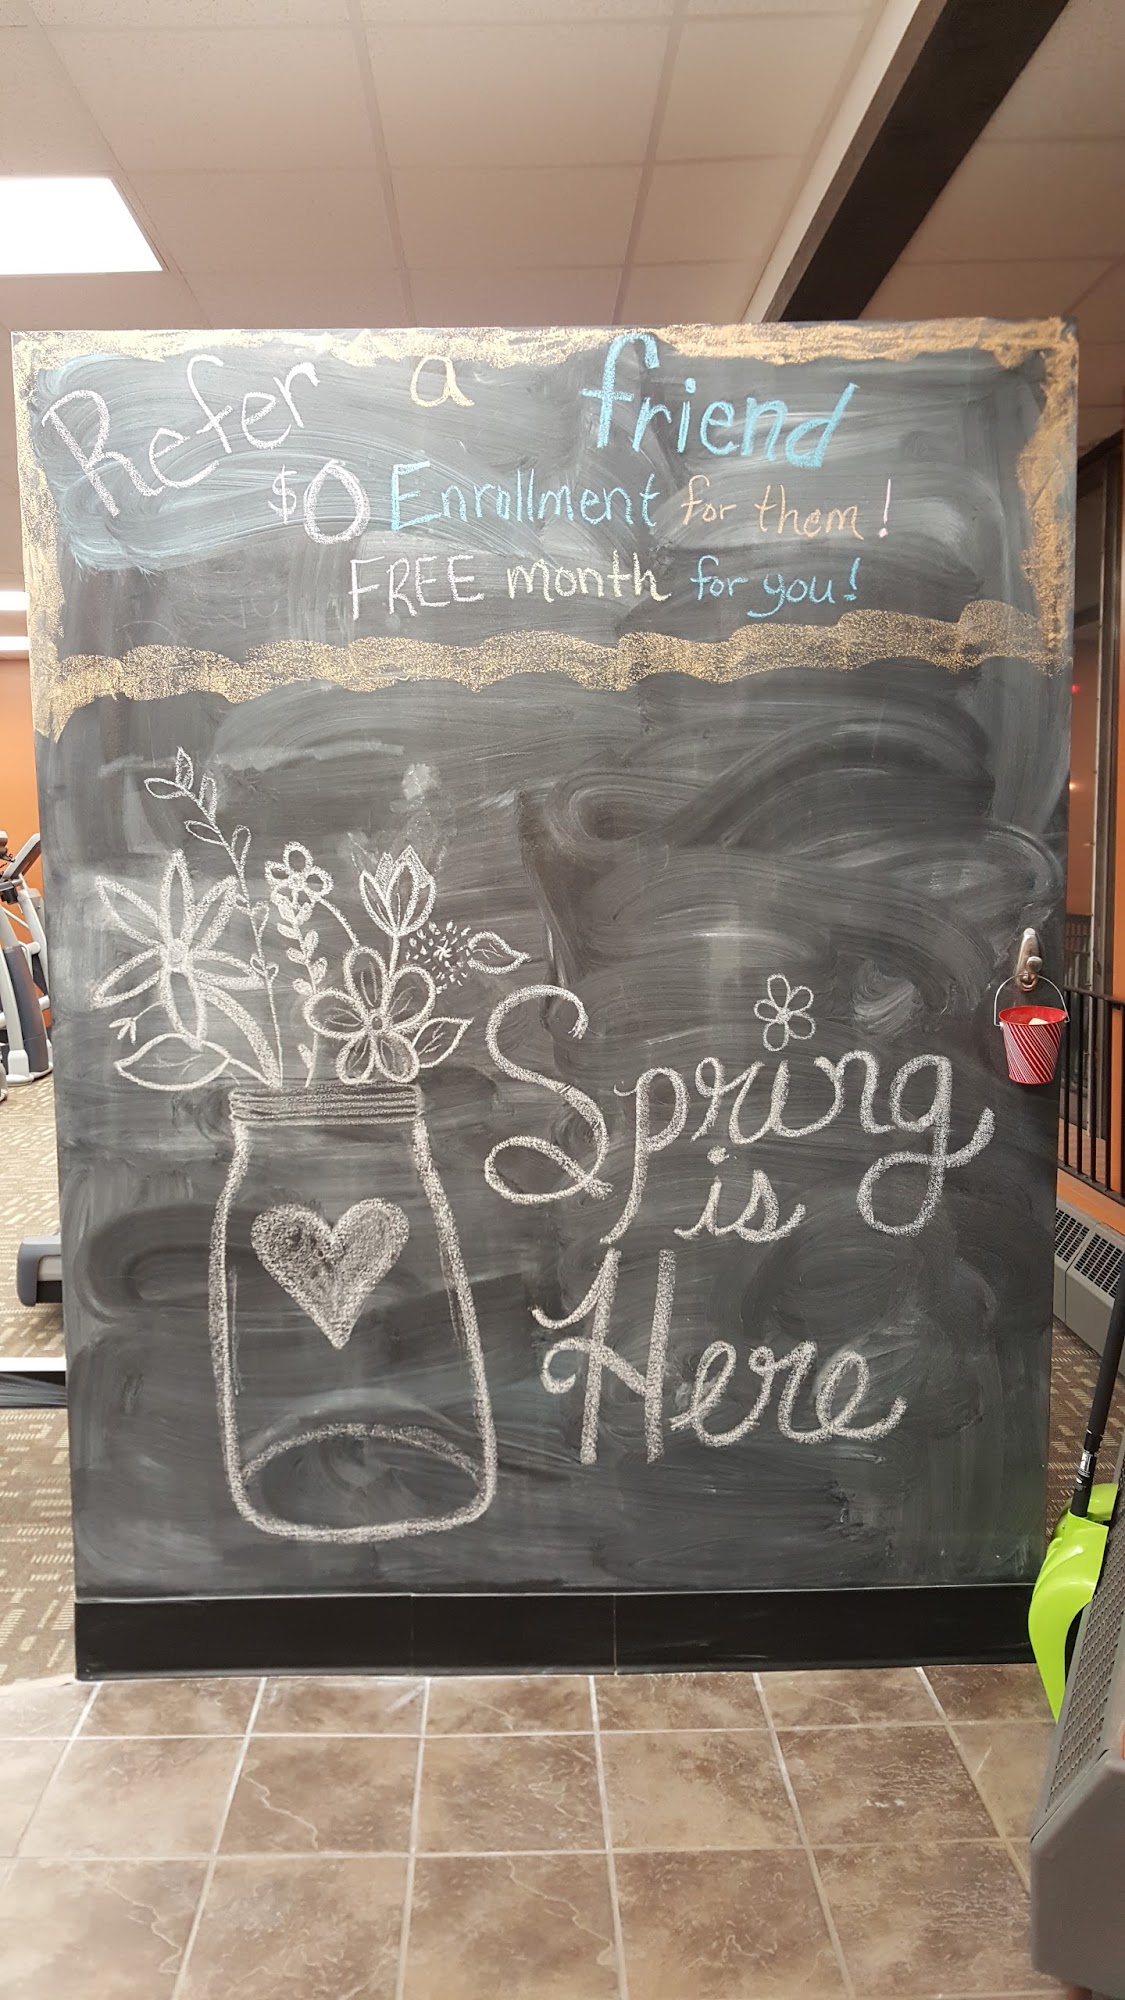 Refer a friend
$0 Enrollment for them!
FREE month for you!
Spring
is
Here